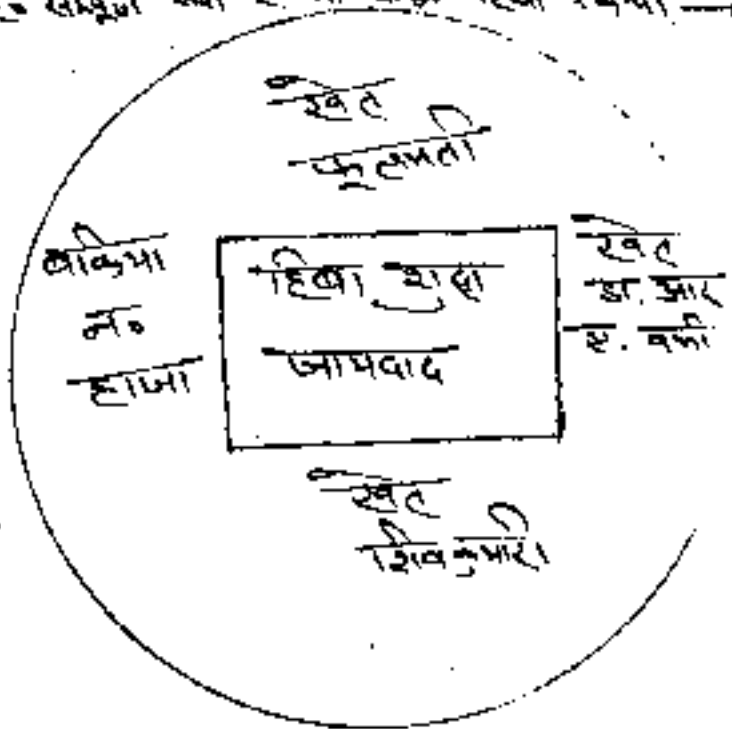 खेत
फूलमती
बाकिया
नं०
हाजा
हिबा शुदा
जायदाद
खेत
डा. आर
ए. वर्मा
खेत
शिवकुमारी